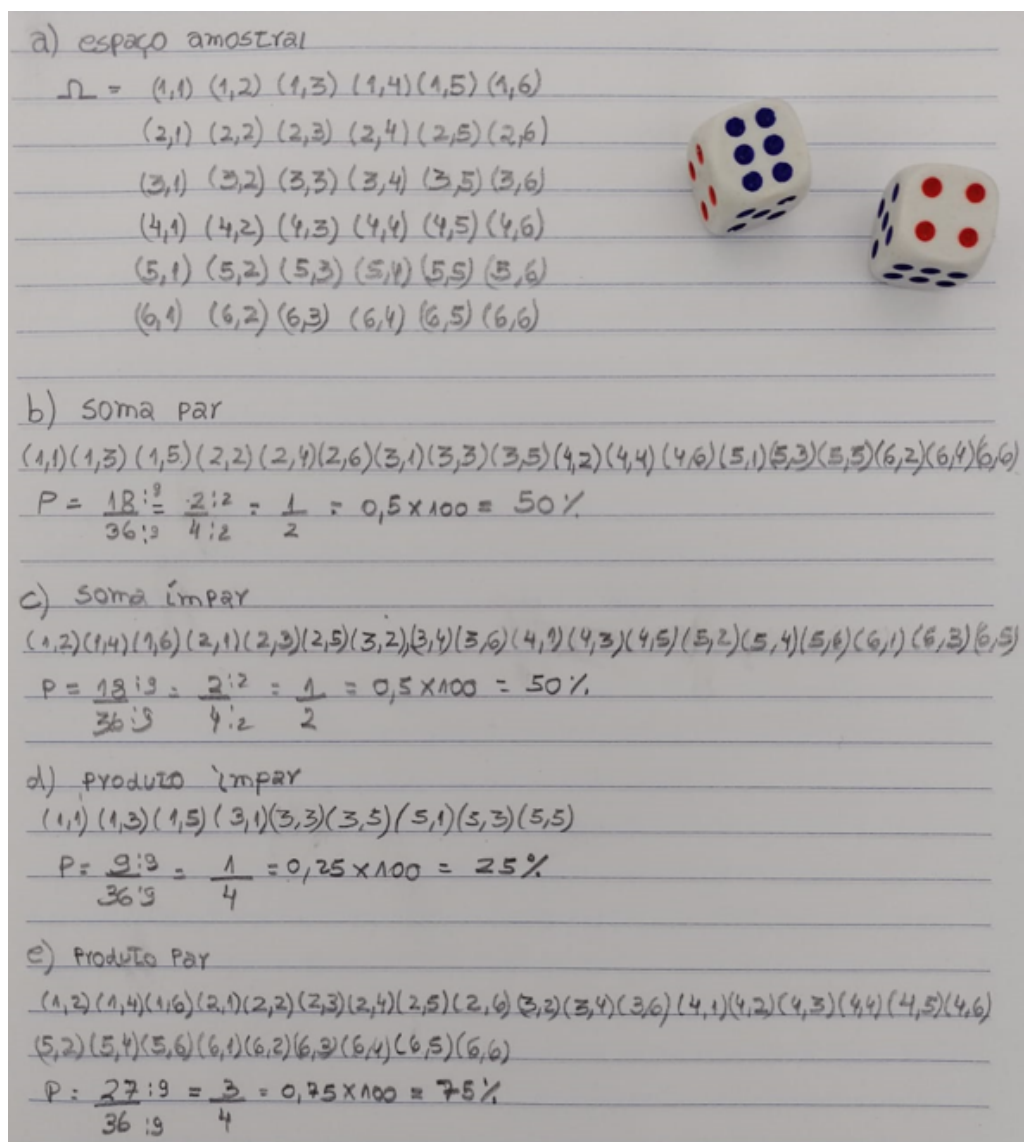 a) espaço amostral
Ω = (1,1) (1,2) (1,3) (1,4) (1,5) (1,6)
(2,1) (2,2) (2,3) (2,4) (2,5) (2,6)
(3,1) (3,2) (3,3) (3,4) (3,5) (3,6)
(4,1) (4,2) (4,3) (4,4) (4,5) (4,6)
(5,1) (5,2) (5,3) (5,4) (5,5) (5,6)
(6,1) (6,2) (6,3) (6,4) (6,5) (6,6)
b) soma par
(1,1) (1,3) (1,5) (2,2) (2,4) (2,6) (3,1) (3,3) (3,5) (4,2) (4,4) (4,6) (5,1) (5,3) (5,5) (6,2) (6,4) (6,6)
P = 18:9/36:9 = 2:2/4:2 = 1/2 = 0,5 x 100 = 50%
c) soma ímpar
(1,2) (1,4) (1,6) (2,1) (2,3) (2,5) (3,2), (3,4) (3,6) (4,1) (4,3) (4,5) (5,2) (5,4) (5,6) (6,1) (6,3) (6,5)
P = 18:9/36:9 = 2:2/4:2 = 1/2 = 0,5 x 100 = 50%
d) produto ímpar
(1,1) (1,3) (1,5) (3,1) (3,3) (3,5) (5,1) (5,3) (5,5)
P = 9:9/36:9 = 1/4 = 0,25 x 100 = 25%
e) Produto Par
(1,2) (1,4) (1,6) (2,1) (2,2) (2,3) (2,4) (2,5) (2,6) (3,2) (3,4) (3,6) (4,1) (4,2) (4,3) (4,4) (4,5) (4,6)
(5,2) (5,4) (5,6) (6,1) (6,2) (6,3) (6,4) (6,5) (6,6)
P = 27:9/36:9 = 3/4 = 0,75 x 100 = 75%